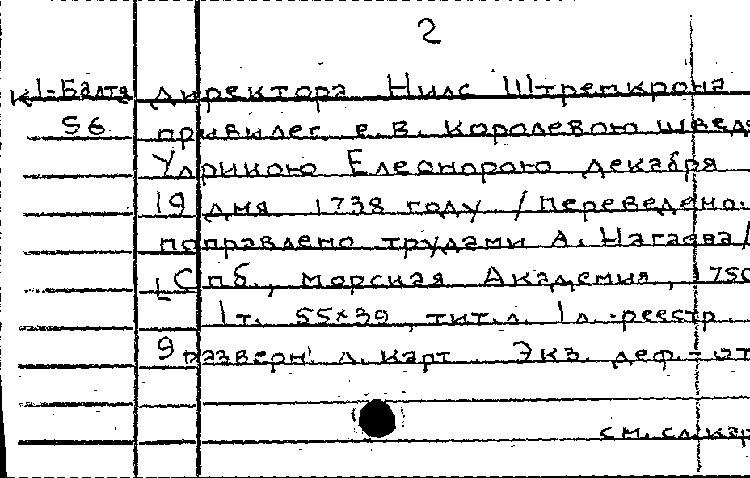 2
К1-Балт. директора Нилс Штремкрона
56 привилег. е. в. королевою швед
Улрикою Елеонорою декабря
19 дня 1738 году /переведено.
поправлено трудами А. Нагаева/
Спб., морская Академия, 1750
1т. 55×39, тит.л. 1л.-реестр.
9 разверн. л. карт Экз. деф.-от
см. сл. кар